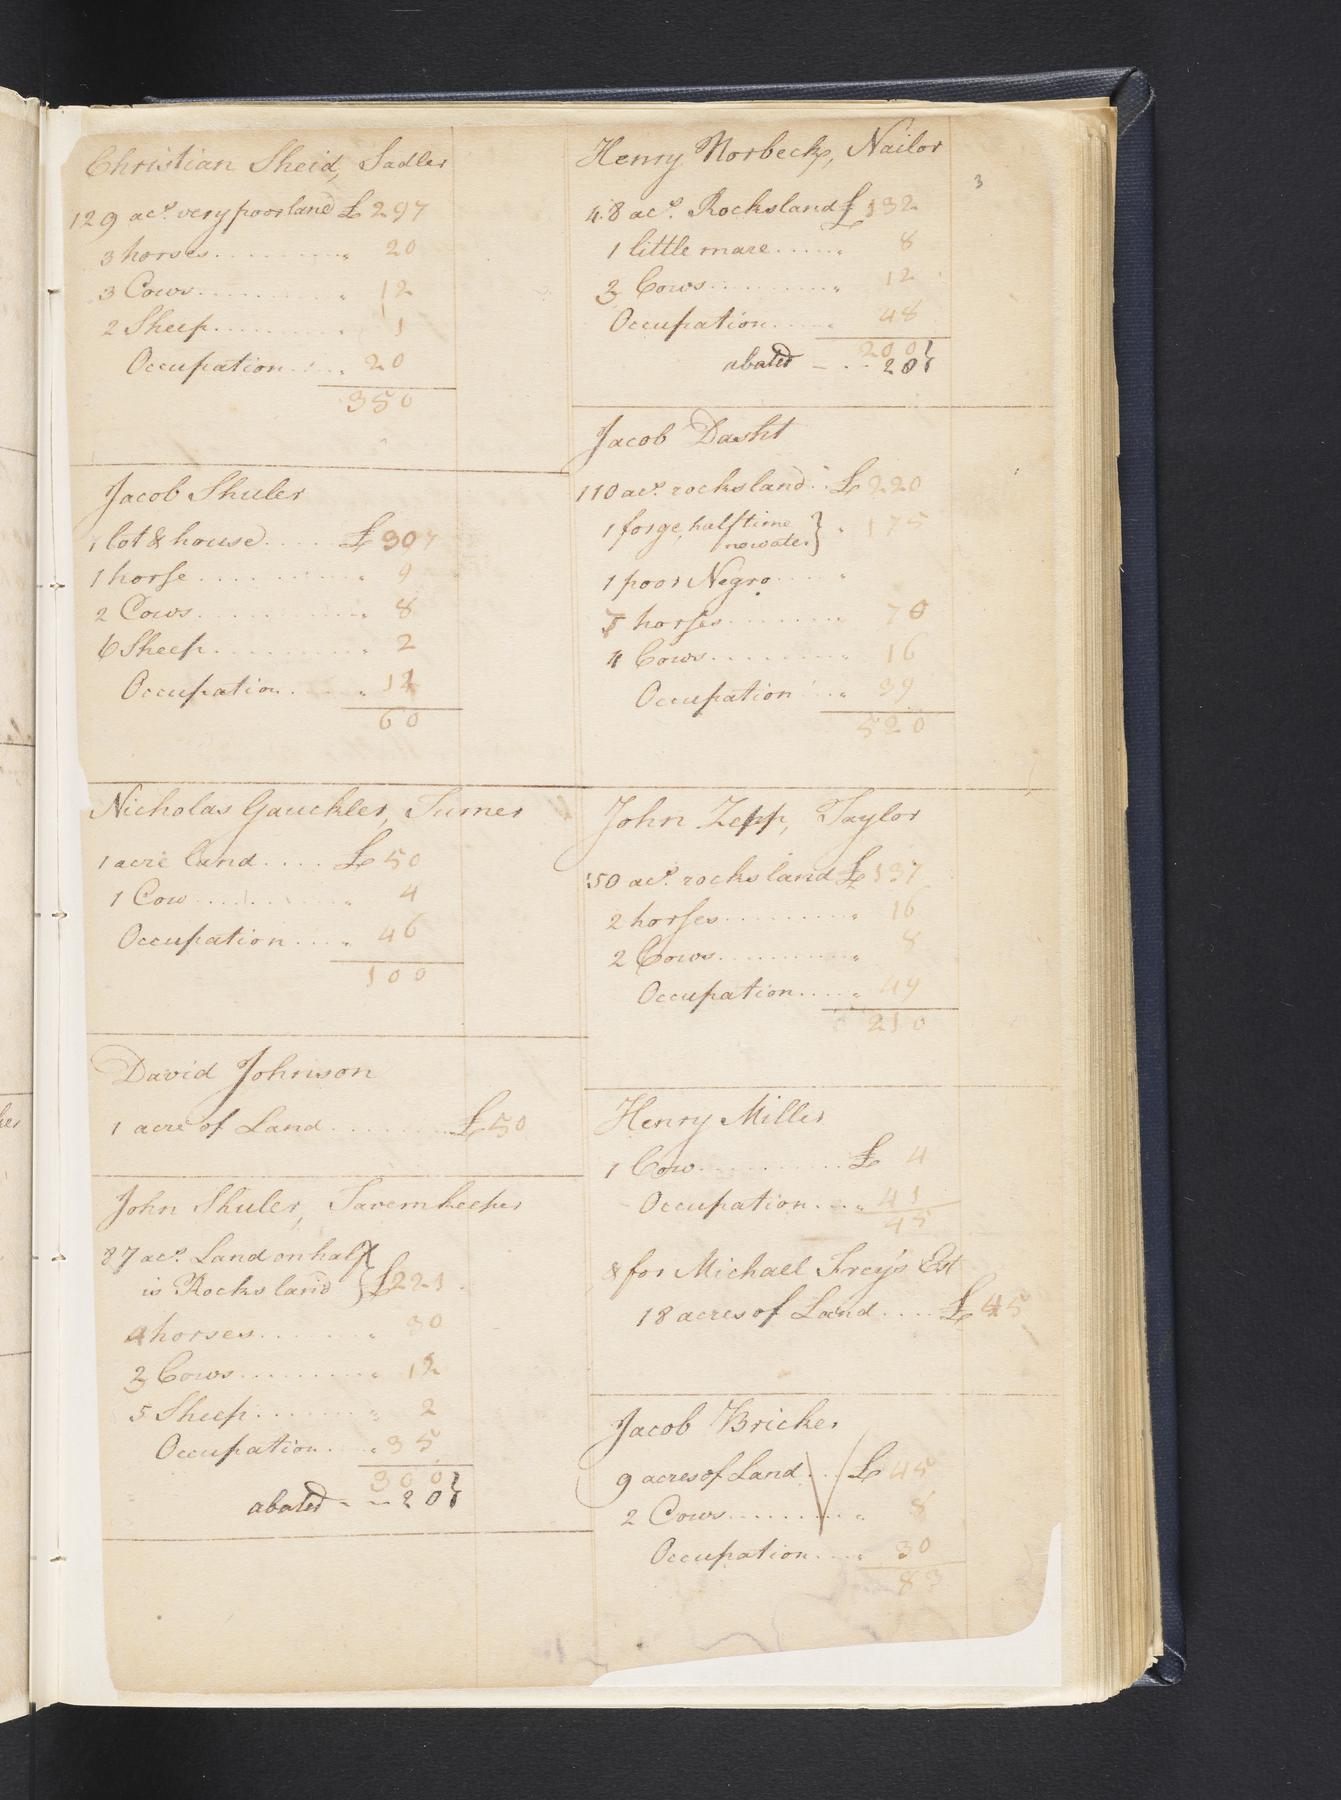 Christian Sheid, Sadler
129 acs. very poor land £ 297
3 horses . . . . . . . . . „ 20
3 Cows . . . . . . . . . . „ 12
2 Sheep . . . . . . . . . „ 1
Occupation . . . . „ 20
350
Jacob Shuler
1 lot & house . . . . £ 30
1 horse . . . . . . . . . „ 9
2 Cows . . . . . . . . . „ 8
6 Sheep . . . . . . . . . „ 2
Occupation . . . . „ 11
60
Nicholas Gauckler, Turner
1 acre land . . . . £ 50
1 Cow . . . . . . . . . „ 4
Occupation . . . . „ 46
100
David Johnson
1 acre of Land . . . . . . . . £ 50
John Shuler, Tavernkeeper
87 acs. Land on half
is Rocks land } £ 221
4 horses . . . . . . . „ 30
3 Cows . . . . . . . . . „ 12
5 Sheep . . . . . . . „ 2
Occupation . . . „ 35
300 }
abated - - 20 }
Henry Norbeck, Nailor
3
48 acs. Rocksland £ 132
1 little mare . . . . . „ 8
3 Cows . . . . . . . . . „ 12
Occupation . . . . „ 48
200 }
abated - . . 20 }
Jacob Dasht
110 acs. rocksland . . £ 220
1 forge, half time
no water } „ 175
1 poor Negro . . . . „
7 horses . . . . . . . . „ 70
4 Cows . . . . . . . . . „ 16
Occupation . . . „ 39
520
John Zepp, Taylor
50 acs. rocks land £ 137
2 horses . . . . . . . . „ 16
2 Cows . . . . . . . . . „ 8
Occupation . . . . „ 49
210
Henry Miller
1 Cow . . . . . . . . . . £ 4
Occupation . . . „ 41
45
& for Michael Frey's Est
18 acres of Land . . . . £ 45
Jacob Bricker
9 acres of Land . . £ 45
2 Cows . . . . . . . . . „ 8
Occupation . . . . „ 30
83